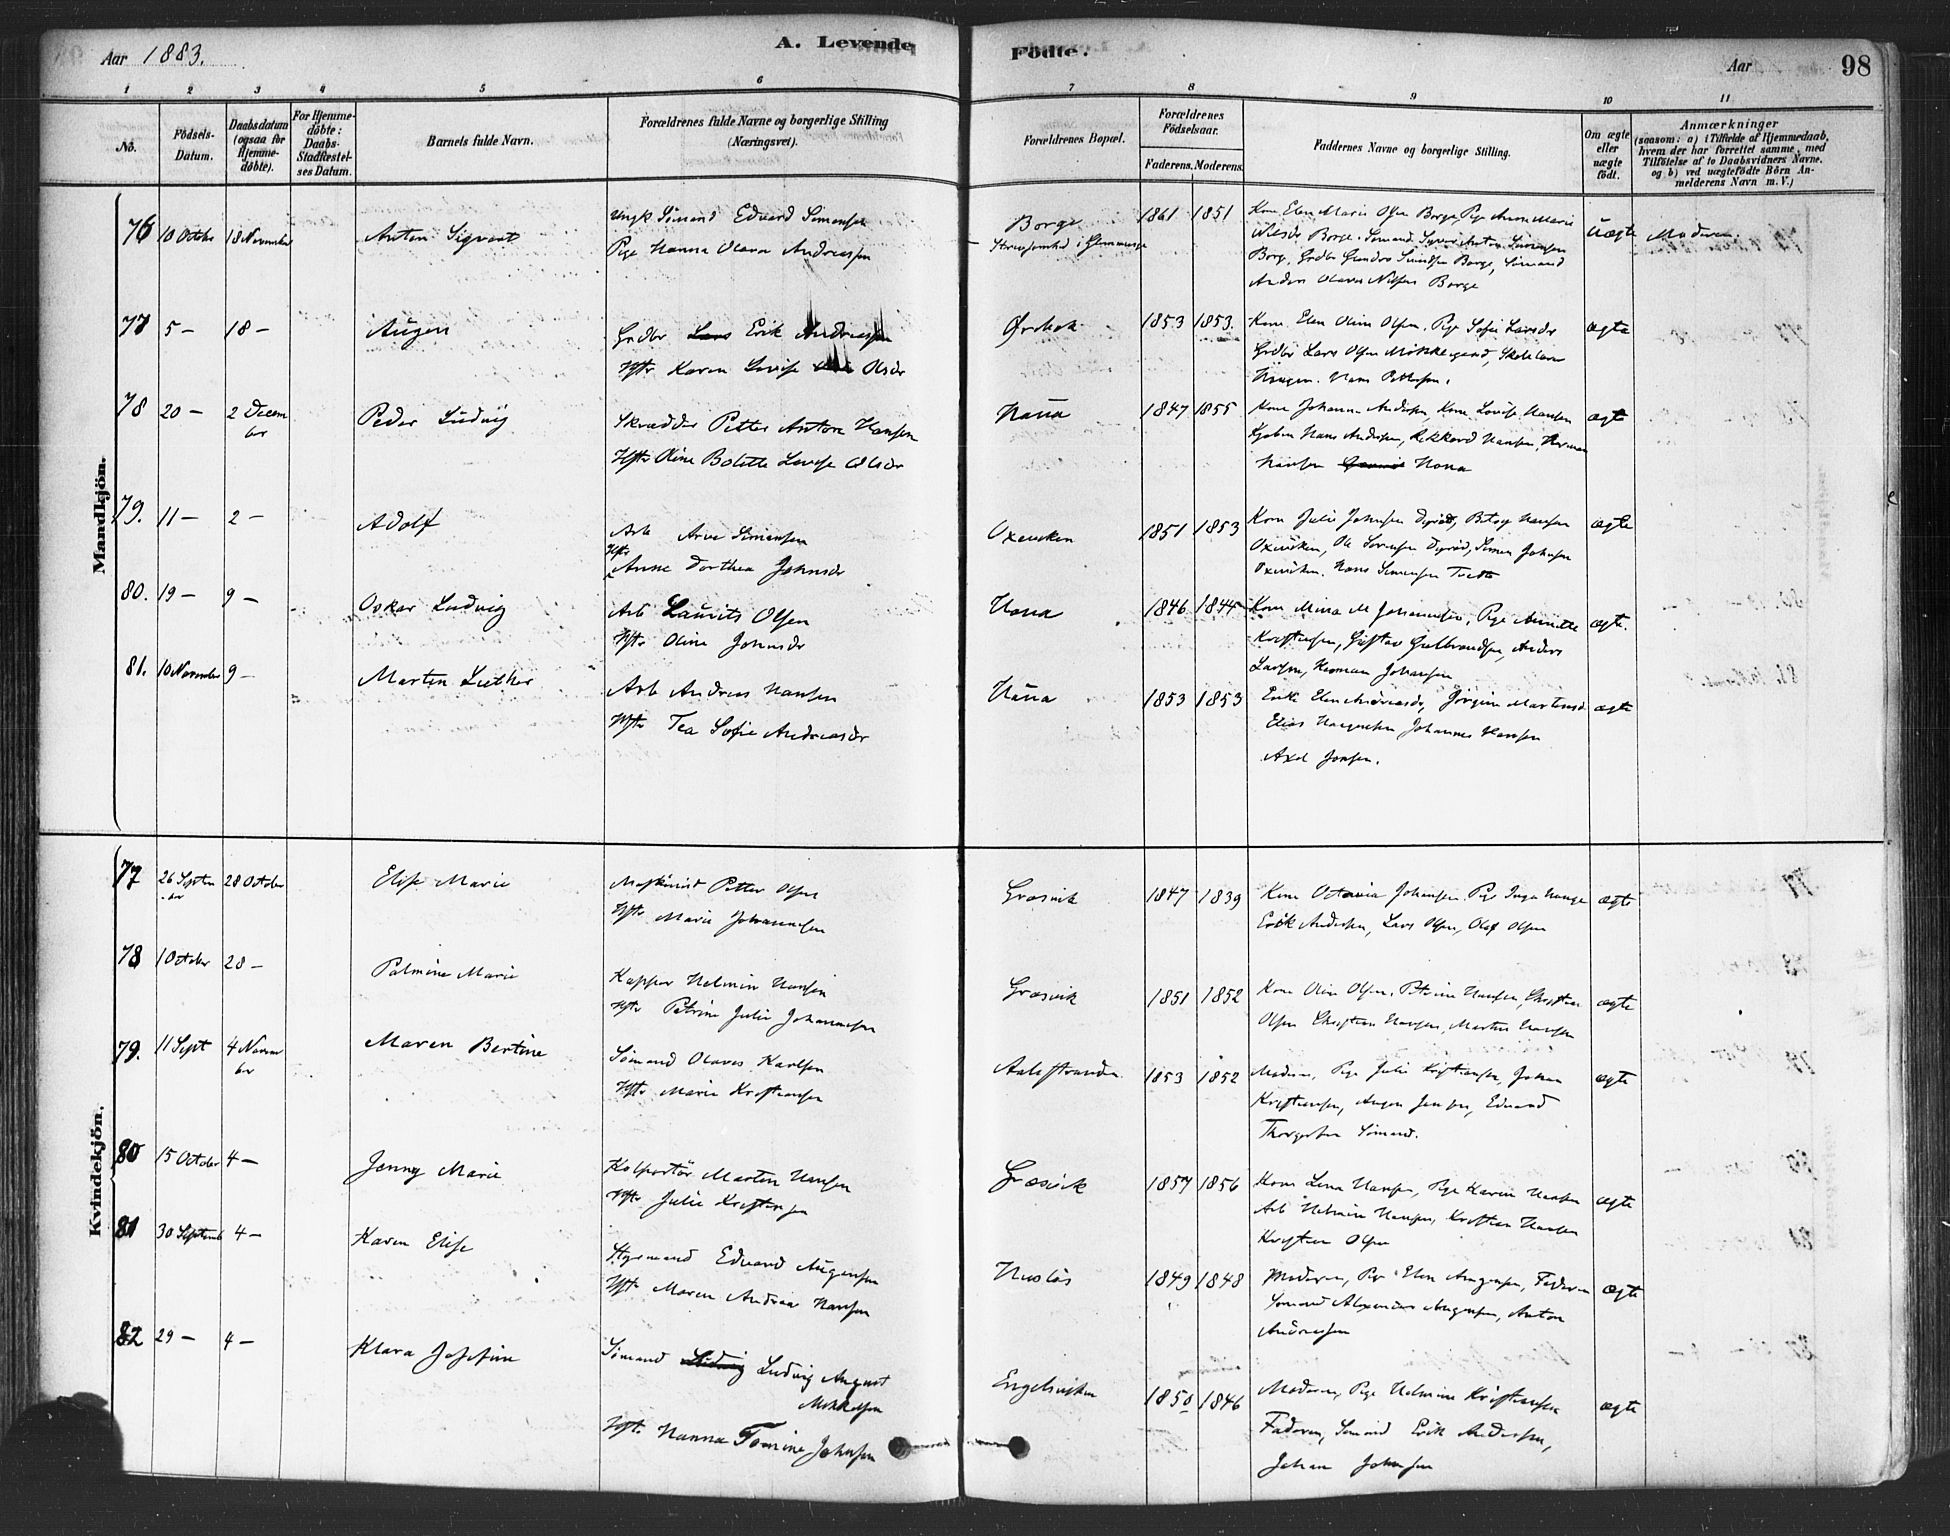 Aar 1883.
A. Levende
Födte.
Aar
98
1 2 3 4 5 6 7 8 9 10 11
No.
Födsels-
Datum.
Daabsdatum
(ogsaa for
Hjemme-
döbte).
For Hjemme-
döbte:
Daabs-
Stadfæstel-
ses Datum.
Barnets fulde Navn.
Forældrenes fulde Navne og borgerlige Stilling
(Næringsvei).
Forældrenes Bopæl.
Forældrenes
Födselsaar.
Faderens. Moderens.
Faddernes Navne og borgerlige Stilling.
Om ægte
eller
uægte
födt.
Anmærkninger
(saasom: a) i Tilfælde af Hjemmedaab,
hvem der har forrettet samme, med
Tilföielse af to Daabsvidners Navne.
og b) ved uægtefödte Börn An-
melderens Navn m. V.)
Mandkjön.
76 10 Octobr 18 November Anton Sigvart
Ungk Sömand Edvard Simensen
Pige Hanna Olava Andreassen
Borge
1861 1851
Kone Elen Marie Olsen Borge, Pige Anne Marie
Borge. Sömand Anton
Borge, Grdbr Borge, Sömand
Anders Olavus Nilsen Borge
Uægte Moderen.
77 5 — 18 — Augen
Grdbr Lars Erik Andreassen
Hstr Karen Lovise Olsdr
Örebek
1853 1853.
Kone Elen Oline Olsen, Pige Sofie Larsdr
Grdbr Lars Olsen Skolelærer
Haagen. Hans Pettersen.
ægte
78 20 — 2 Decem
ber
Peder Ludvig
Skrædder Petter Anton Hansen
Hstr Oline Bolette Lovise Olsdr
Haua
1847 1855
Kone Johanne Andersen, Kone Lovise Hansen
Hans Andersen, Rikkard Hansen, Herman
Hansen Hona
ægte
79. 11 — 2 — Adolf
Arb Arve Simensen
Hstr
Anne Dorthea Johnsdr
Oxeviken
1851 1853
Kone Julie Johnsen Dyröd, Betsy Hansen
Oxeviken, Ole Sörensen Dyröd, Simen Johnsen
Oxeviken. Hans Simensen
ægte
80. 19 — 9 — Oskar Ludvig
Arb Laurits Olsen
Hstr Oline Johnsdr
Hona
1846 1844
Kone Mina M Johannesen, Pige Annette
Kristiansen, Gustav Gulbrandsen, Anders
Larsen, Herman Johansen
ægte.
81. 10 November 9 — Martin Luther
Arb Andreas Hansen
Hstr Tea Sofie Andreasdr
Haua
1853 1853
Enke Elen Andreasdr, Jörgine Martinsd
Elias Johannes Hansen
Axel Jonsen.
ægte
Kvindekjön.
77 26 Septem
ber
28 October Elise Marie
Maskinist Petter Olsen
Hstr Marie Johannesen
Græsvik
1847 1839
Kone Octavia Johansen, Pige Inga Hauge
Erik Andersen, Lars Olsen, Olaf Olsen
ægte
78 1 October 28 — Palmine Marie
Kapper Helmin Hansen
Hstr Petrine Julie Johannesen
Græsvik
1851 1852
Kone Oline Olsen. Petrine Hansen, Christian
Olsen Christian Hansen, Martin Hansen
ægte
79. 11 Sept 4 Novem
ber
Maren Bertine
Sömand Olaves Karlsen
Hstr Marie Kristiansen
Aalestranden
1853 1852
Moderen, Pige Julie Kristiansen, Johan
Kristiansen, Augen Jensen, Edvard
Thorgersen Sömand.
ægte
80 15 October 4 — Jenny Marie
Kolportör Martin Hansen
Hstr Julie Kristensen
Græsvik
1857 1856
Kone Lina Hansen, Pige Karin Hansen
Arb Helmin Hansen, Kristian Hansen
Kristian Olsen
ægte
81 30 Septemb 4 — Karen Elise
Styrmand Edvard Augensen
Hstr Maren Andrea Hansen
Huslös
1849 1848
Moderen, Pige Elen Augensen, Faderen
Sömand Augensen, Anton
Andreassen
ægte
82 29 — 4 — Klara Josefine
Sömand Ludvig Ludvig August
Mikkelsen
Hstr. Hanna Tomine Johnsen
Engelsviken
1850 1846
Moderen, Pige Helmine Kristiansen
Faderen, Sömand Erik Andersen,
Johan Johnsen
ægte